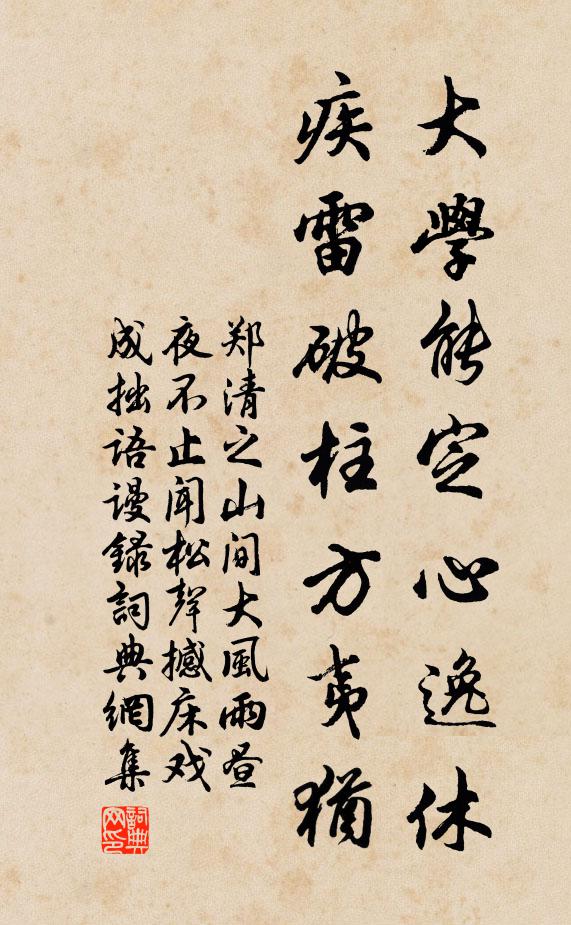 大學能定心逸休
疾雷破柱方夷猶
郑清之山间大風雨昼
夜不止闻松聲撼床戏
成拙语谩録詞典網集
詞典
网印